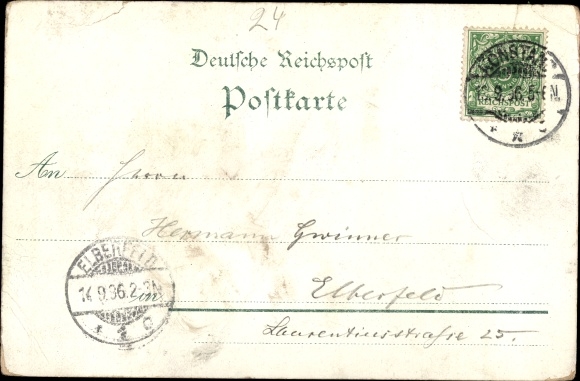 24
Deutsche Reichspost
Postkarte
REICHSPOST
KONSTANZ
9.96.5-6N.
An Herrn
Hermann Gwinner
in Elberfeld
Laurentiusstraße 25.
ELBERFELD
14.9.96.2-3N
1 c